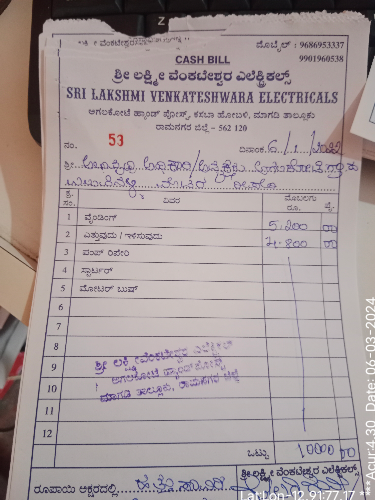 ಮೊಬೈಲ್ : 9686953337
CASH BILL 9901960538
ಶ್ರೀ ಲಕ್ಷ್ಮೀ ವೆಂಕಟೇಶ್ವರ ಎಲೆಕ್ಟ್ರಿಕಲ್ಸ್
SRI LAKSHMI VENKATESHWARA ELECTRICALS
ಅಗಲಕೋಟೆ ಹ್ಯಾಂಡ್ ಪೋಸ್ಟ್, ಕಸಬಾ ಹೋಬಳಿ, ಮಾಗಡಿ ತಾಲ್ಲೂಕು
ರಾಮನಗರ ಜಿಲ್ಲೆ - 562 120
ನಂ. 53 ದಿನಾಂಕ
ಶ್ರೀ
ಕ್ರ. ಸಂ. ವಿವರ ಮೊಬಲಗು ರೂ. ಪೈ.
1 ವೈಂಡಿಂಗ್ 5,200 00
2 ಎತ್ತುವುದು / ಇಳಿಸುವುದು 4,800 00
3 ಪಂಪ್ ರಿಪೇರಿ
4 ಸ್ಟಾರ್ಟರ್
5 ಮೋಟರ್ ಬುಷ್
6
7
8
9 ಶ್ರೀ ಲಕ್ಷ್ಮೀ ವೆಂಕಟೇಶ್ವರ ಎಲೆಕ್ಟ್ರಿಕಲ್ಸ್
10 ಅಗಲಕೋಟೆ ಹ್ಯಾಂಡ್ ಪೋಸ್ಟ್
ಮಾಗಡಿ ತಾಲ್ಲೂಕು, ರಾಮನಗರ ಜಿಲ್ಲೆ
11
12
ಒಟ್ಟು 10000 00
ಶ್ರೀ ಲಕ್ಷ್ಮೀ ವೆಂಕಟೇಶ್ವರ ಎಲೆಕ್ಟ್ರಿಕಲ್ಸ್
ರೂಪಾಯಿ ಅಕ್ಷರದಲ್ಲಿ
Lat:Lon-12.91:77.17
***Acur:4.30, Date: 06-03-2024